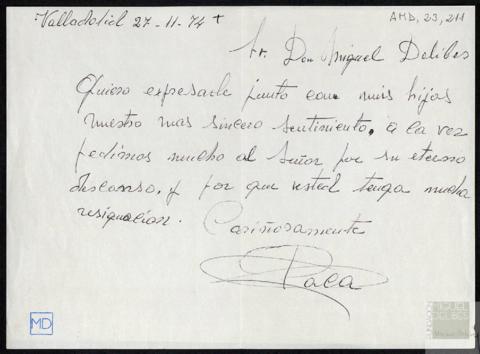 Valladolid 27-11-74 +
AMD, 23, 211
Sr. Don Miguel Delibes
Quiero expresarle junto con mis hijos
nuestro mas sincero sentimiento, a la vez
pedimos mucho al Señor por su eterno
descanso, y por que usted tenga mucha
resignacion.
Cariñosamente
Paca
MD
MIGUEL
DELIBES